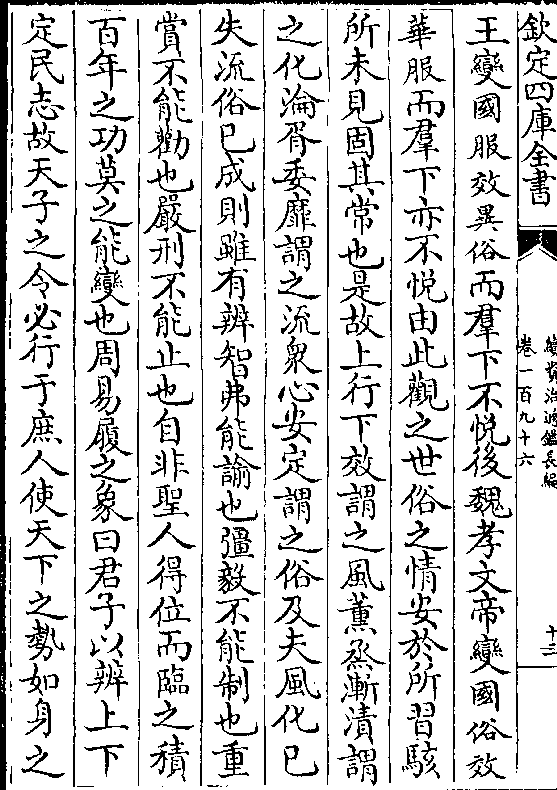 欽定四庫全書
續資治通鑑長編
卷一百九十六
十三
王變國服效異俗而羣下不悅後魏孝文帝變國俗效
華服而羣下亦不悅由此觀之世俗之情安於所習駭
所未見固其常也是故上行下效謂之風薰烝漸漬謂
之化淪胥委靡謂之流衆心安定謂之俗及夫風化已
失流俗已成則雖有辨智弗能諭也彊毅不能制也重
賞不能勸也嚴刑不能止也自非聖人得位而臨之積
百年之功莫之能變也周易履之象曰君子以辨上下
定民志故天子之令必行于庶人使天下之勢如身之